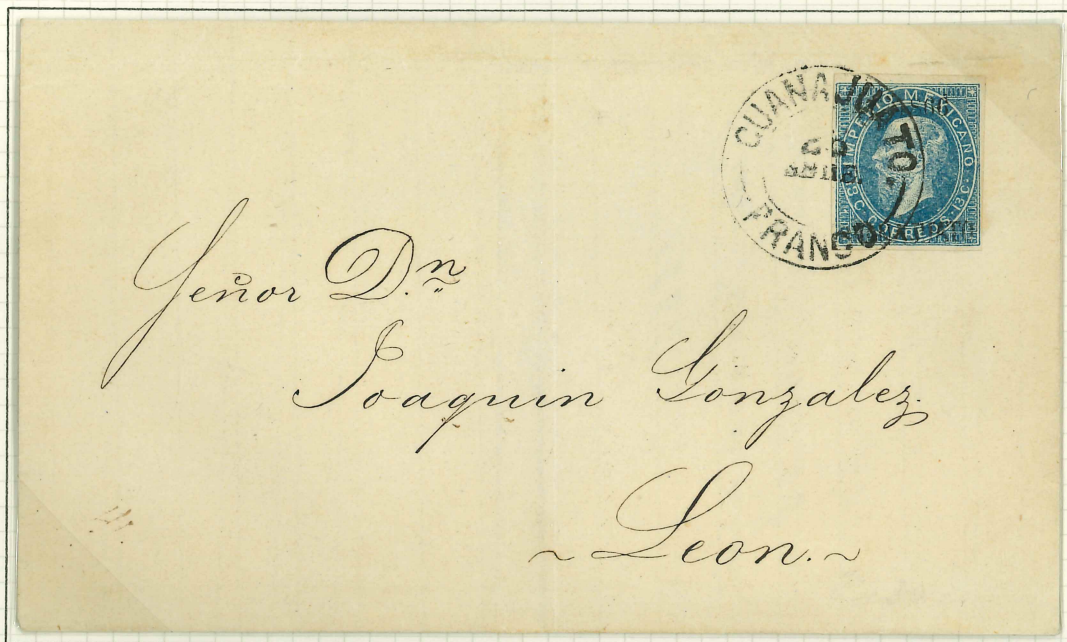 GUANAJUATO.
FRANCO
IMPERIO MEXICANO.
13 C. CORREOS 13 C.
Señor D.n
Joaquin Gonzalez.
~ Leon. ~